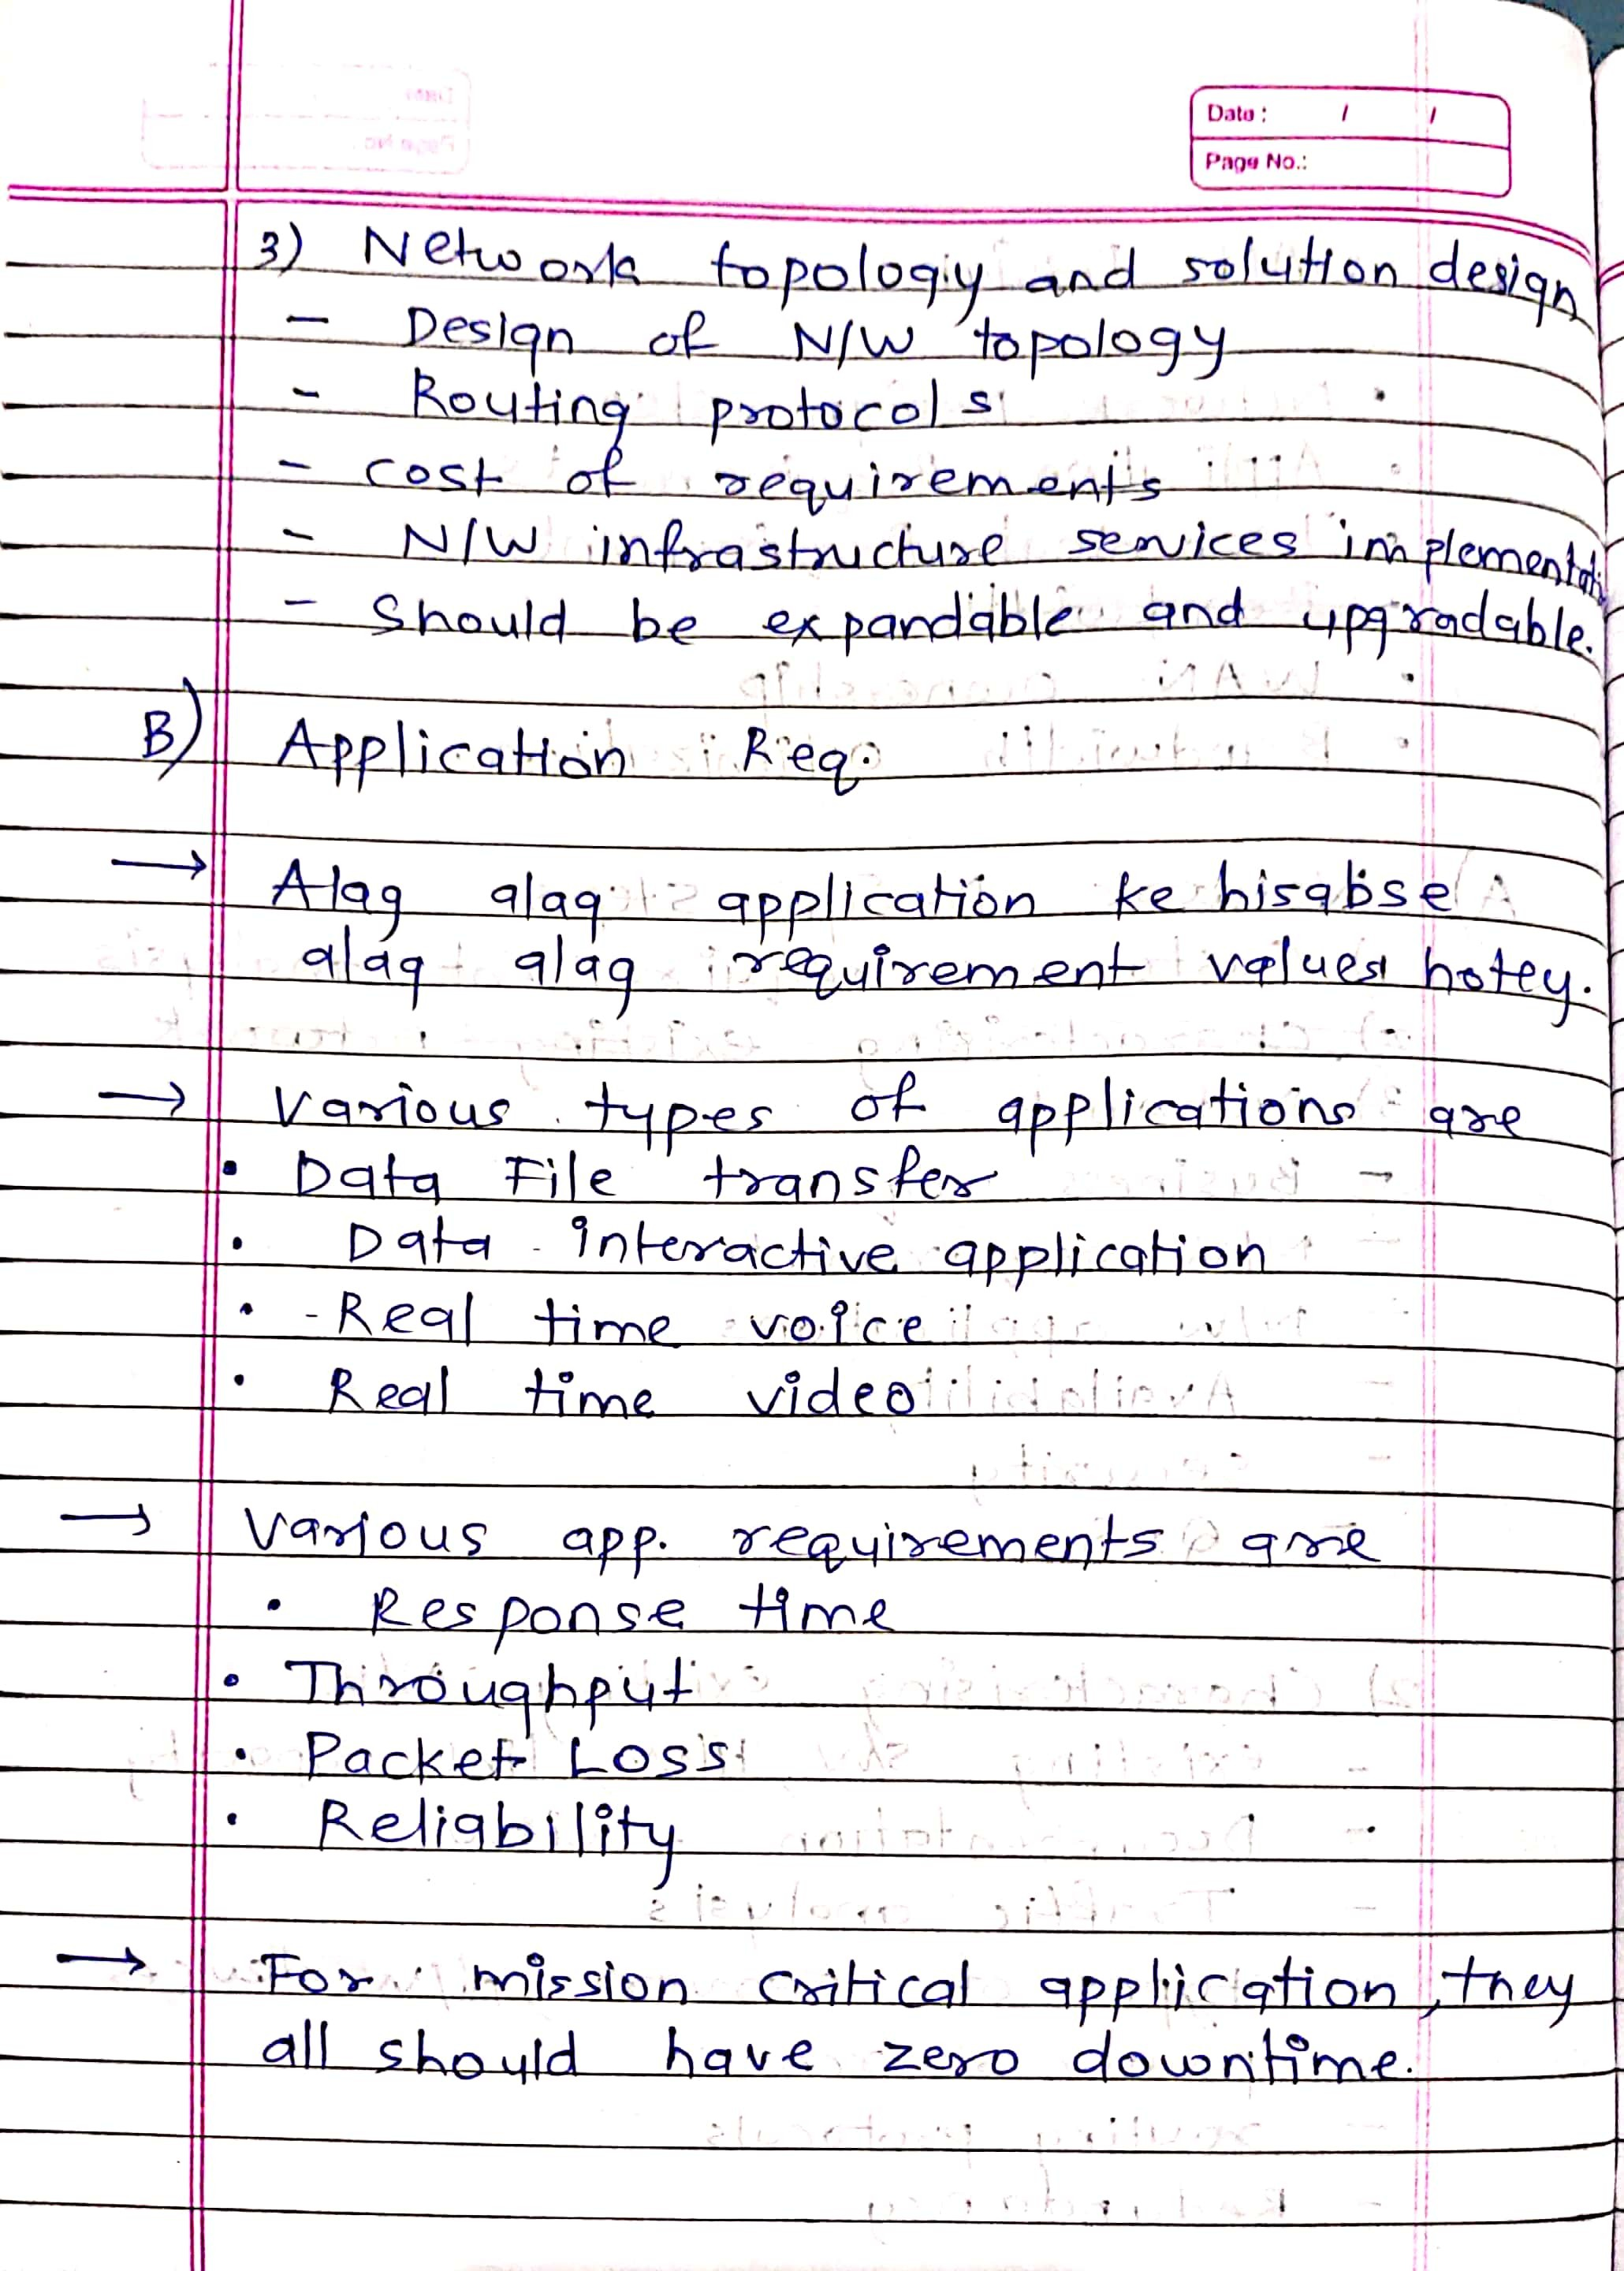 Date : / /
Page No.:
3) Network topology and solution design
- Design of N/W topology
- Routing protocols
- cost of requirements
- N/W infrastructure services implementati
- Should be expandable and upgradable.
B) Application Req.
→ Alag alag application ke hisabse
alag alag requirement values hotey.
→ Various types of applications are
• Data File transfer
• Data interactive application
• - Real time voice
• Real time video
→ Various app. requirements are
• Response time
• Throughput
• Packet Loss
• Reliability
→ For mission critical application, they
all should have zero downtime.